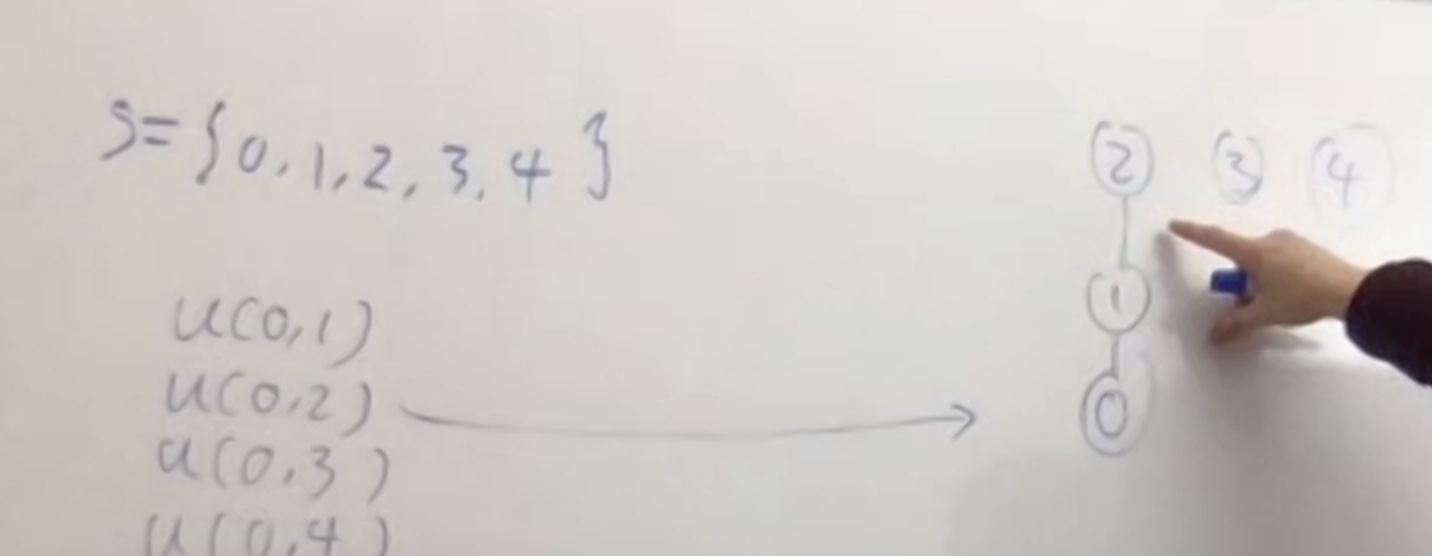 S={0,1,2,3,4}
u(0,1)
u(0,2)
u(0,3)
u(0,4)
2 3 4
1
0